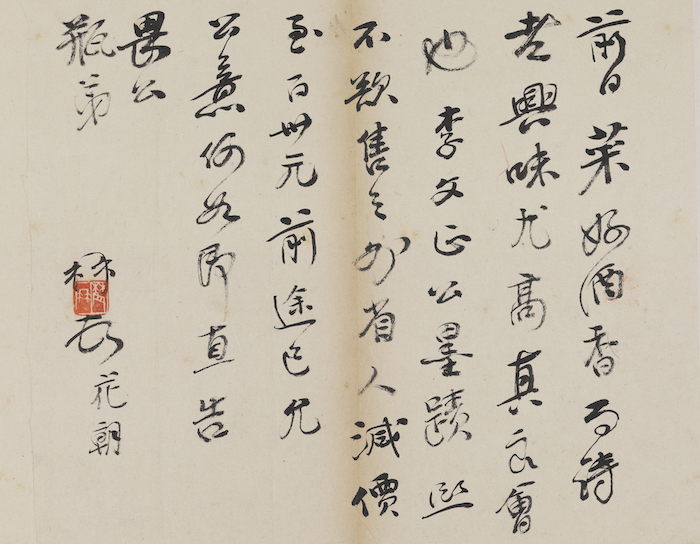 前日菜好酒香而詩
老興味尤高真良會
也李文正公墨蹟熙
不欲售之外省人減價
至百卌元前途已允
公意何如即直告
畏公
瓶弟
花朝